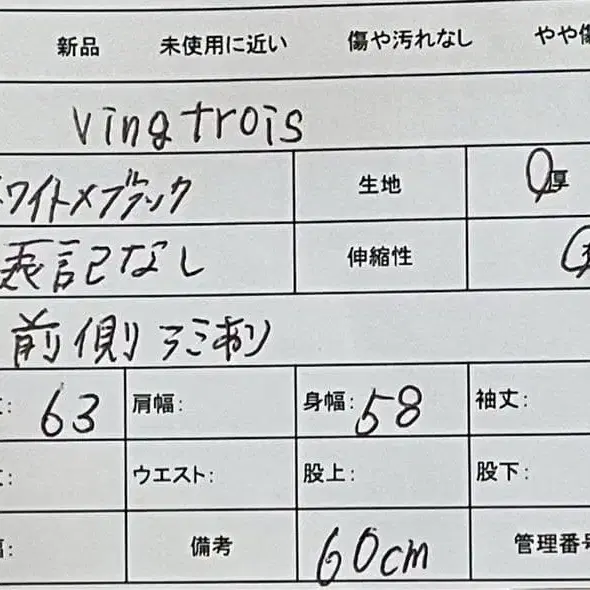 新品 未使用に近い 傷や汚れなし やや傷
vingtrois
ホワイト×ブラック 生地 厚
表記なし 伸縮性
前側
: 63 肩幅: 身幅: 58 袖丈:
: ウエスト: 股上: 股下:
: 備考 60cm 管理番号